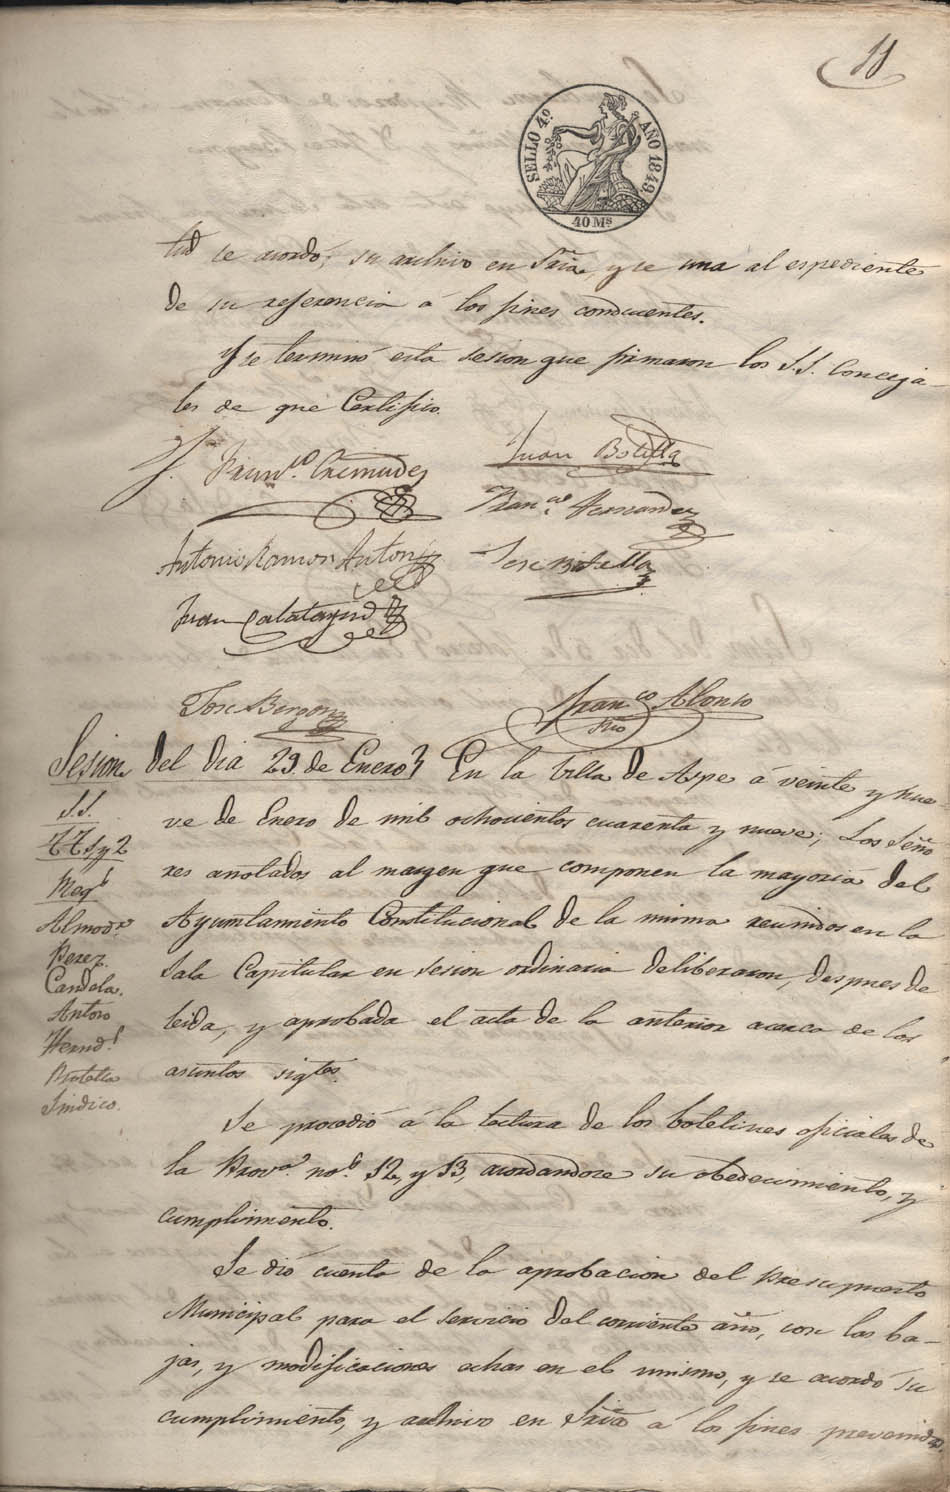 11
SELLO 4º AÑO 1849.
40 Ms
tud se acordó; su archivo en Sria, y se una al espediente
de su referencia á los fines conducentes.
Y se terminó esta sesion que firmaron los S.S. Conceja-
les de que Certifico.
Franco. Cremades
Juan Botella
Franco Hernandez
Antonio Ramon Antón
Jose Botella
Juan Calatayud
Jose Bergon
Franco Alonso
Srio
Sesion del dia 29 de Enero En la Villa de Aspe á veinte y nue-
ve de Enero de mil ochocientos cuarenta y nueve; Los Seño
res anotados al margen que componen la mayoria del
Ayuntamiento Constitucional de la misma reunidos en la
Sala Capitular en sesion ordinaria deliberaron, despues de
leida, y aprobada el acta de la anterior acerca de los
asuntos sigtes.
S.S.
TT 1 y 2
Regs
Almodr
Perez.
Candela.
Antoro
Hernds
Botella
Sindico.
Se procedió á la lectura de los boletines oficiales de
la Prova nos 12, y 13, acordandose su obedecimiento, y
cumplimiento.
Se dió cuenta de la aprobacion del presupuesto
Municipal para el servicio del corriente año, con las ba-
jas, y modificaciones echas en el mismo, y se acordó su
cumplimiento, y archivo en Sria á los fines prevenidos.